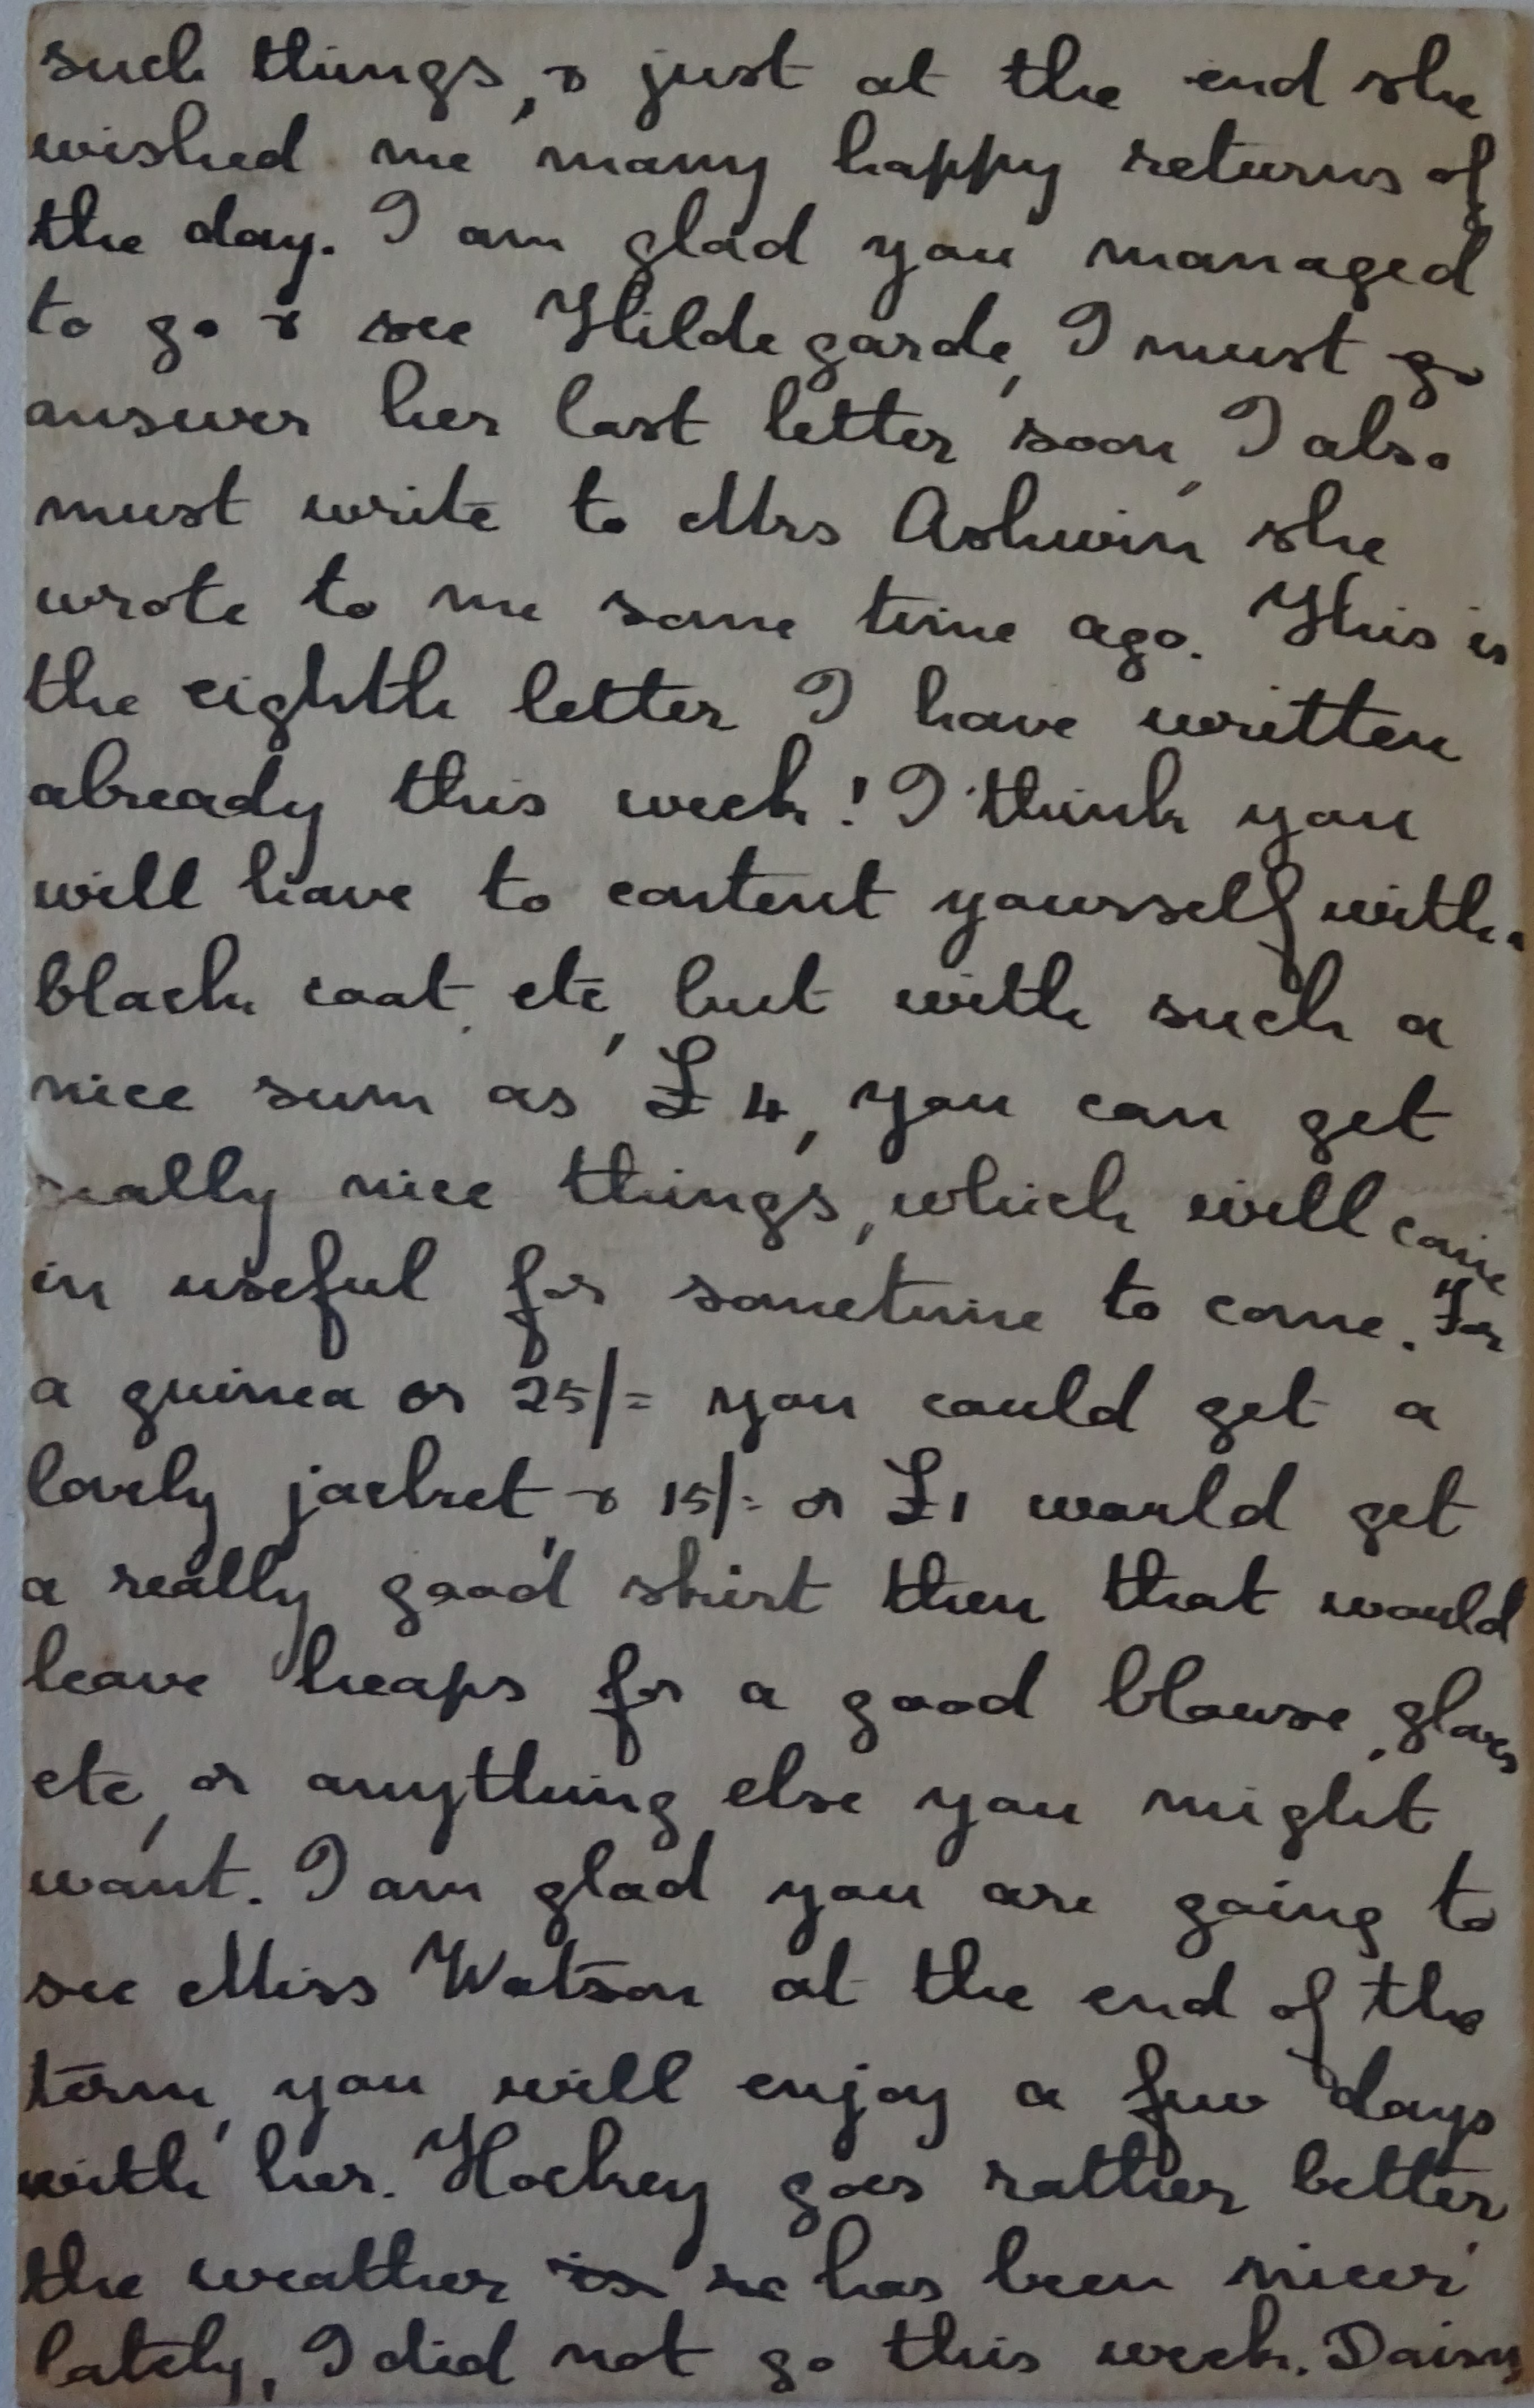 such things, & just at the end she
wished me many happy returns of
the day. I am glad you managed
to go & see Hildegarde, I must go
answer her last letter soon, I also
must write to Mrs Ashwin she
wrote to me some time ago. This is
the eighth letter I have written
already this week! I think you
will have to content yourself with a
black coat, etc, but with such a
nice sum as £4, you can get
really nice things, which will come
in useful for sometime to come. For
a guinea or 25/= you could get a
lovely jacket, & 15/= or £1 would get
a really good skirt then that would
leave heaps for a good blouse, gloves
etc, or anything else you might
want. I am glad you are going to
see Miss Watson at the end of the
term, you will enjoy a few days
with her. Hockey goes rather better,
the weather is has been nicer
lately, I did not go this week. Daisy